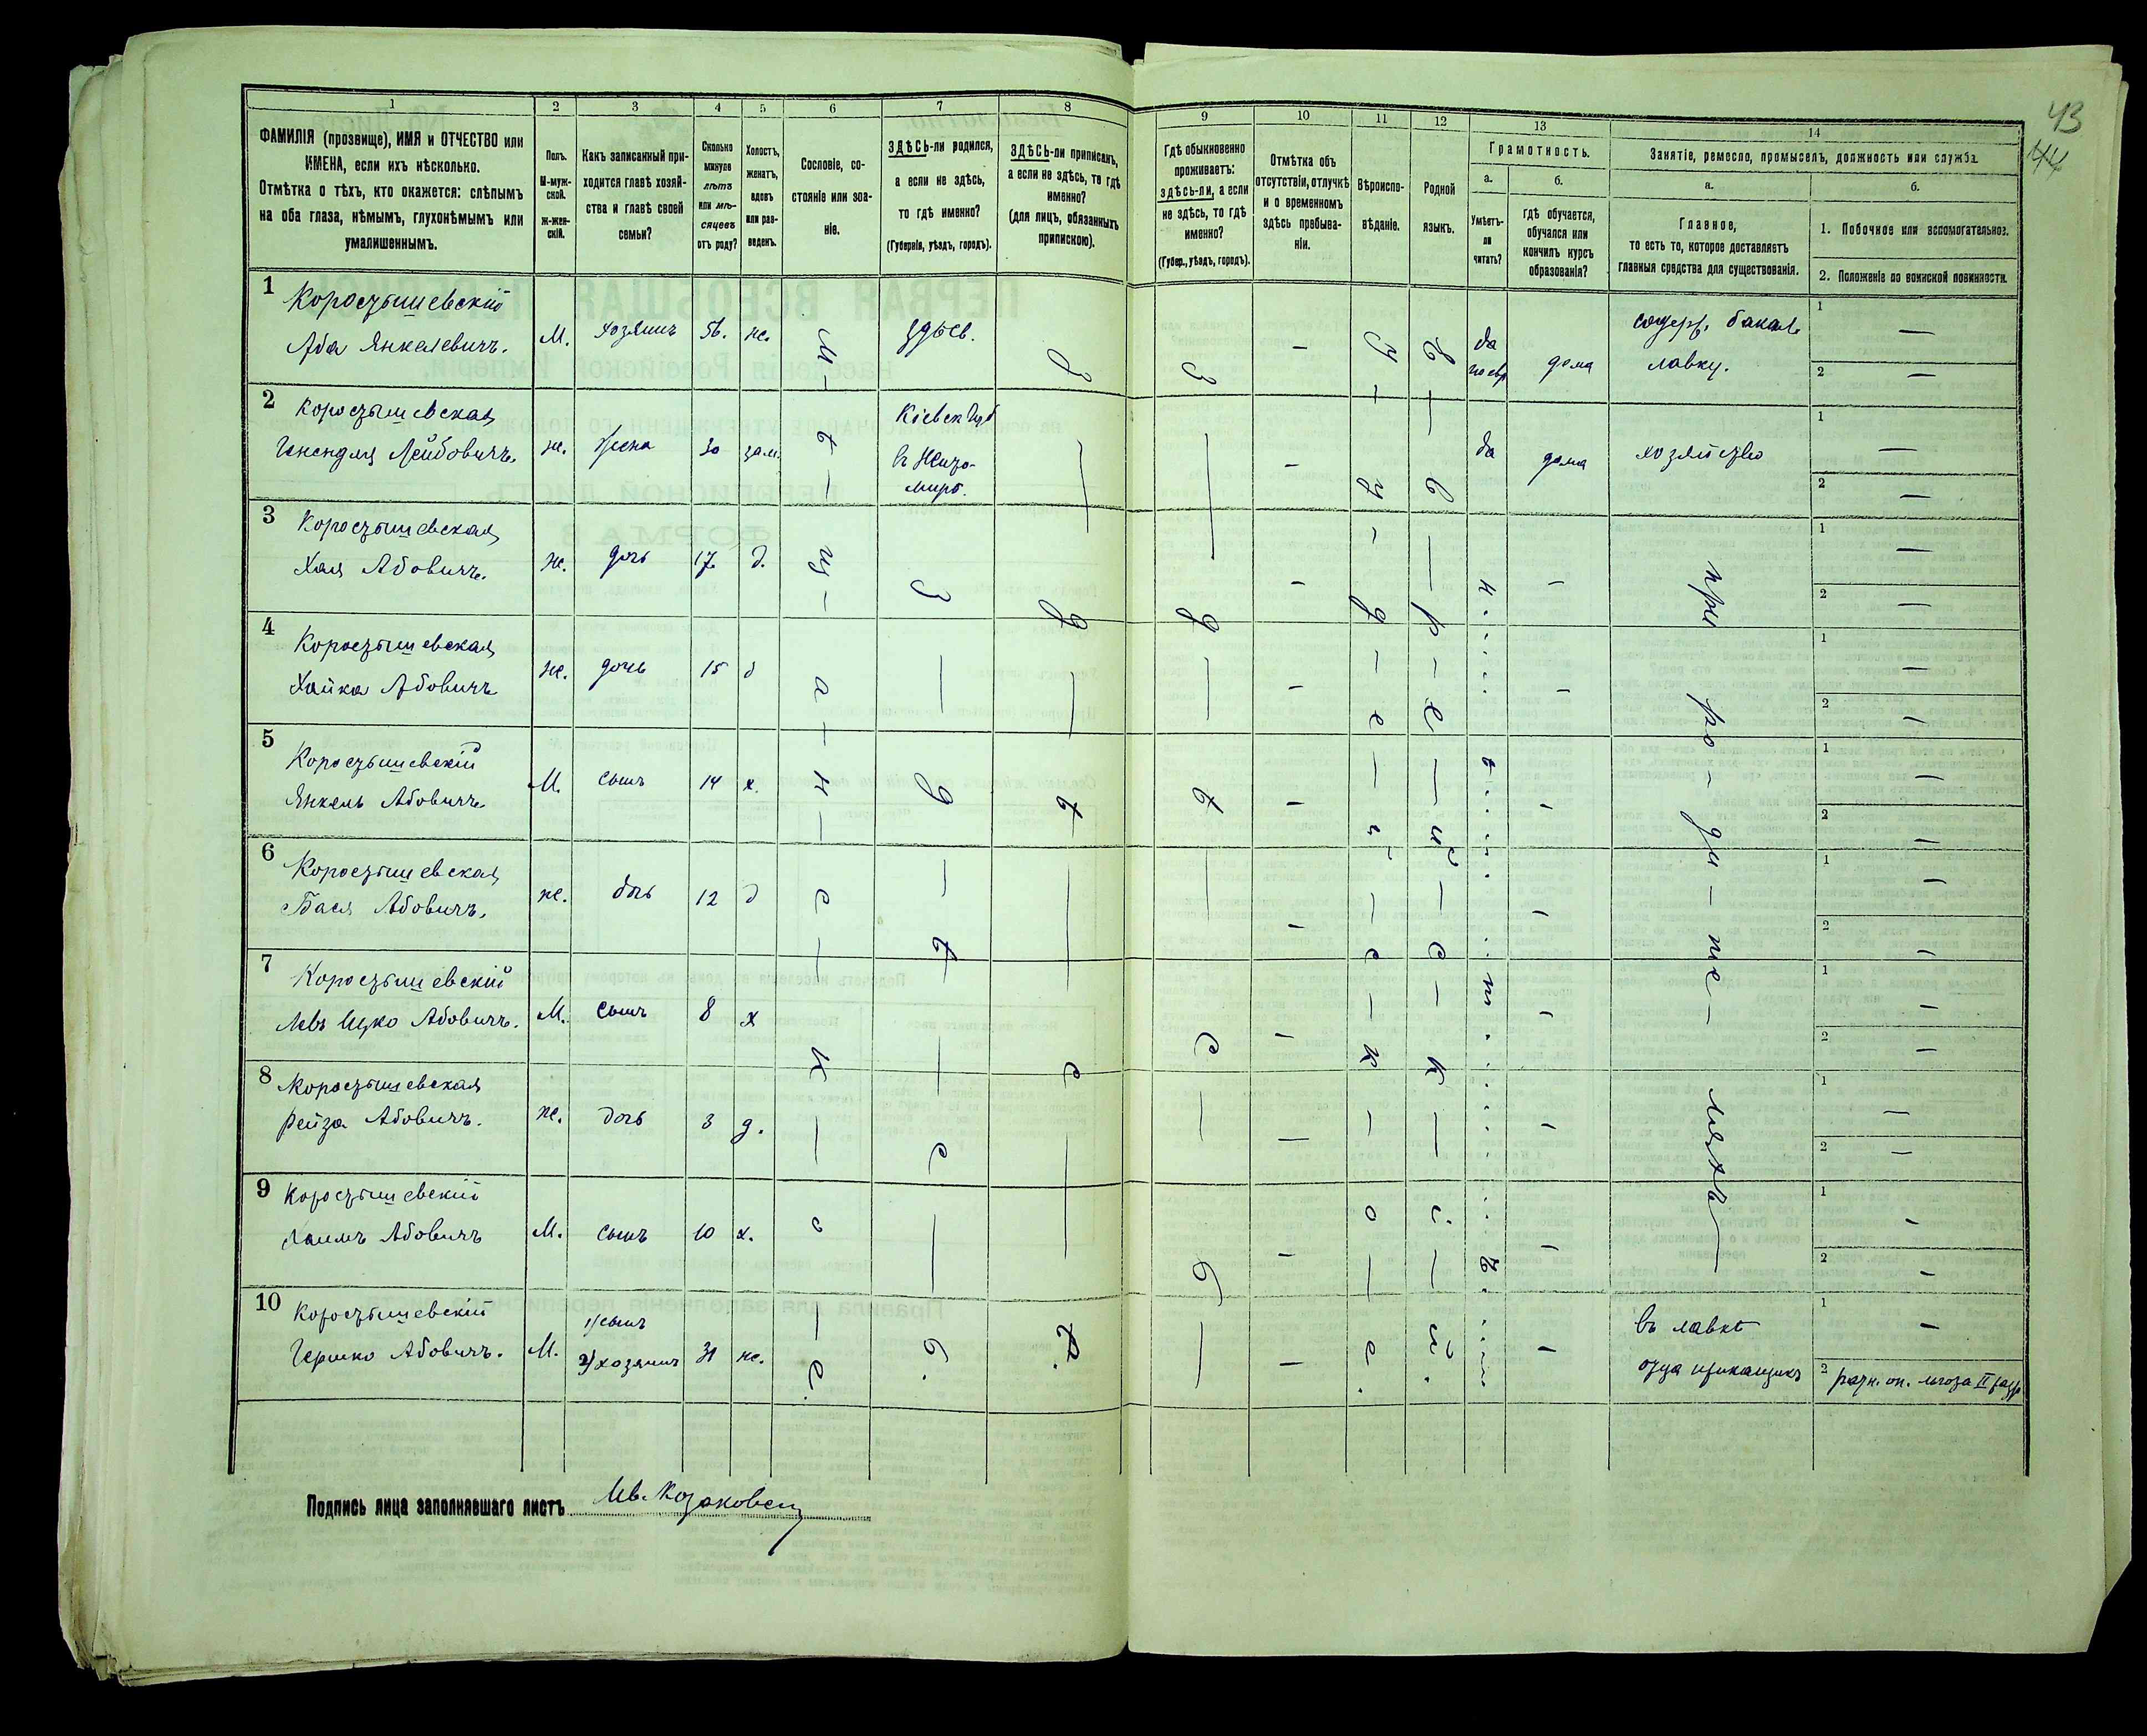 43
44
1 2 3 4 5 6 7 8 9 10 11 12 13 14
ФАМИЛІЯ (прозвище), ИМЯ и ОТЧЕСТВО или
ИМЕНА, если ихъ нѣсколько.
Отмѣтка о тѣхъ, кто окажется: слѣпымъ
на оба глаза, нѣмымъ, глухонѣмымъ или
умалишеннымъ.
Полъ.
М-муж-
ской.
ж-жен-
скій.
Какъ записанный при-
ходится главѣ хозяй-
ства и главѣ своей
семьи?
Сколько
минуло
лѣтъ
или мѣ-
сяцевъ
отъ роду?
Холостъ,
женатъ,
вдовъ
или раз-
веденъ.
Сословіе, со-
стояніе или зва-
ніе.
ЗДѢСЬ-ли родился,
а если не здѣсь,
то гдѣ именно?
(Губернія, уѣздъ, городъ).
ЗДѢСЬ-ли приписанъ,
а если не здѣсь, то гдѣ
именно?
(для лицъ, обязанныхъ
припискою).
Гдѣ обыкновенно
проживаетъ:
здѣсь-ли, а если
не здѣсь, то гдѣ
именно?
(Губер., уѣздъ, городъ).
Отмѣтка объ
отсутствіи, отлучкѣ
и о временномъ
здѣсь пребыва-
ніи.
Вѣроиспо-
вѣданіе.
Родной
языкъ.
Грамотность.
а.
Умѣетъ-
ли
читать?
б.
гдѣ обучается,
обучался или
кончилъ курсъ
образованія?
Занятіе, ремесло, промыселъ, должность или служба.
а.
Главное,
то есть то, которое доставляетъ
главныя средства для существованія.
б.
1. Побочное или вспомогательное.
2. Положеніе по воинской повинности.
1 Коростышевскій
Аба Янкелевичъ. М. хозяинъ 56. же. здѣсь. да по евр дома содерж. бакал. лавку. 1 — 2 —
2 Коростышевская
Лейбовичъ. же. жена 30 зам. Кіевск Губ да дома хозяйство 1 — 2 —
3 Коростышевская
Хая Абовичъ. же. дочь 17. д. — 1 — 2 —
4 Коростышевская
Хайка Абовичъ же. дочь 15 д — 1 — 2 —
5 Коростышевскій
Янкель Абовичъ. М. сынъ 14 х. — 1 — 2 —
6 Коростышевская
Бася Абовичъ. же. дочь 12 д — 1 — 2 —
7 Коростышевскій
Ицко Абовичъ. М. сынъ 8 х — 1 — 2 —
8 Коростышевская
Рейза Абовичъ. же. дочь 3 д. — 1 — 2 —
9 Коростышевскій
Хаимъ Абовичъ М. сынъ 10 х. — 1 — 2 —
10 Коростышевскій
Гершко Абовичъ. М. 1) сынъ 2) хозяинъ 31 же. — въ лавкѣ отца прикащикъ 1 — 2 льгота II разр
м-ѣ-щ-а-н-с-к-о-е.
з-д-ѣ-с-ь.
з-д-ѣ-с-ь
з-д-ѣ-с-ь
і-у-д-е-й-с-к-о-е.
е-в-р-е-й-с-к-і-й.
н-ѣ-т-ъ
при ро-ди-те-ляхъ
Подпись лица заполнявшаго листъ